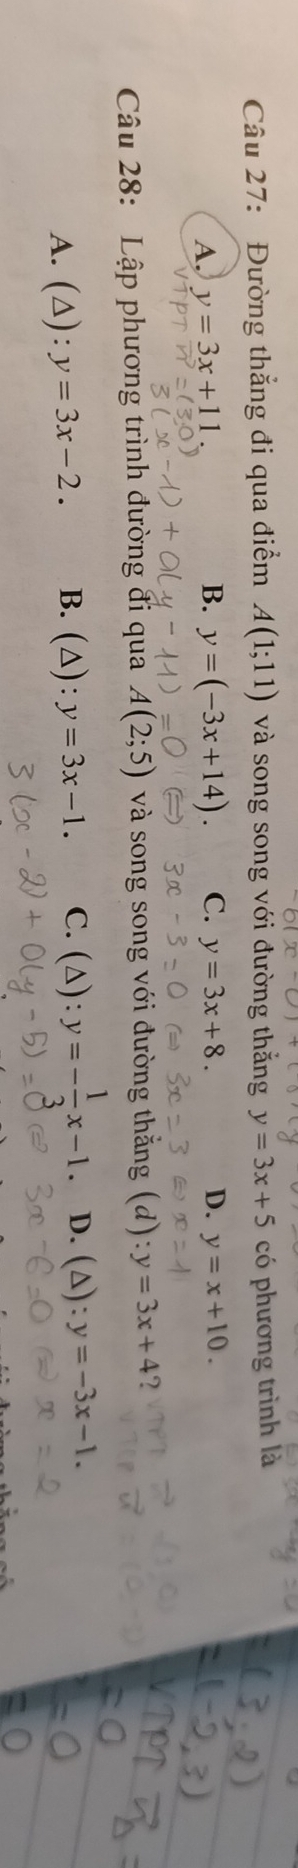 Câu 27: Đường thẳng đi qua điểm A(1;11) và song song với đường thẳng y = 3x + 5 có phương trình là
A. y = 3x + 11. B. y = (-3x + 14). C. y = 3x + 8. D. y = x + 10.
VTPT n = (3,0)
3(x - 1) + 0(y - 11) = 0 ⇔ 3x - 3 = 0 ⇔ 3x = 3 ⇔ x = 1
Câu 28: Lập phương trình đường đi qua A(2;5) và song song với đường thẳng (d): y = 3x + 4?
A. (Δ): y = 3x - 2. B. (Δ): y = 3x - 1. C. (Δ): y = -1/3 x - 1. D. (Δ): y = -3x - 1.
3(x - 2) + 0(y - 5) = 0 ⇔ 3x - 6 = 0 ⇔ x = 2